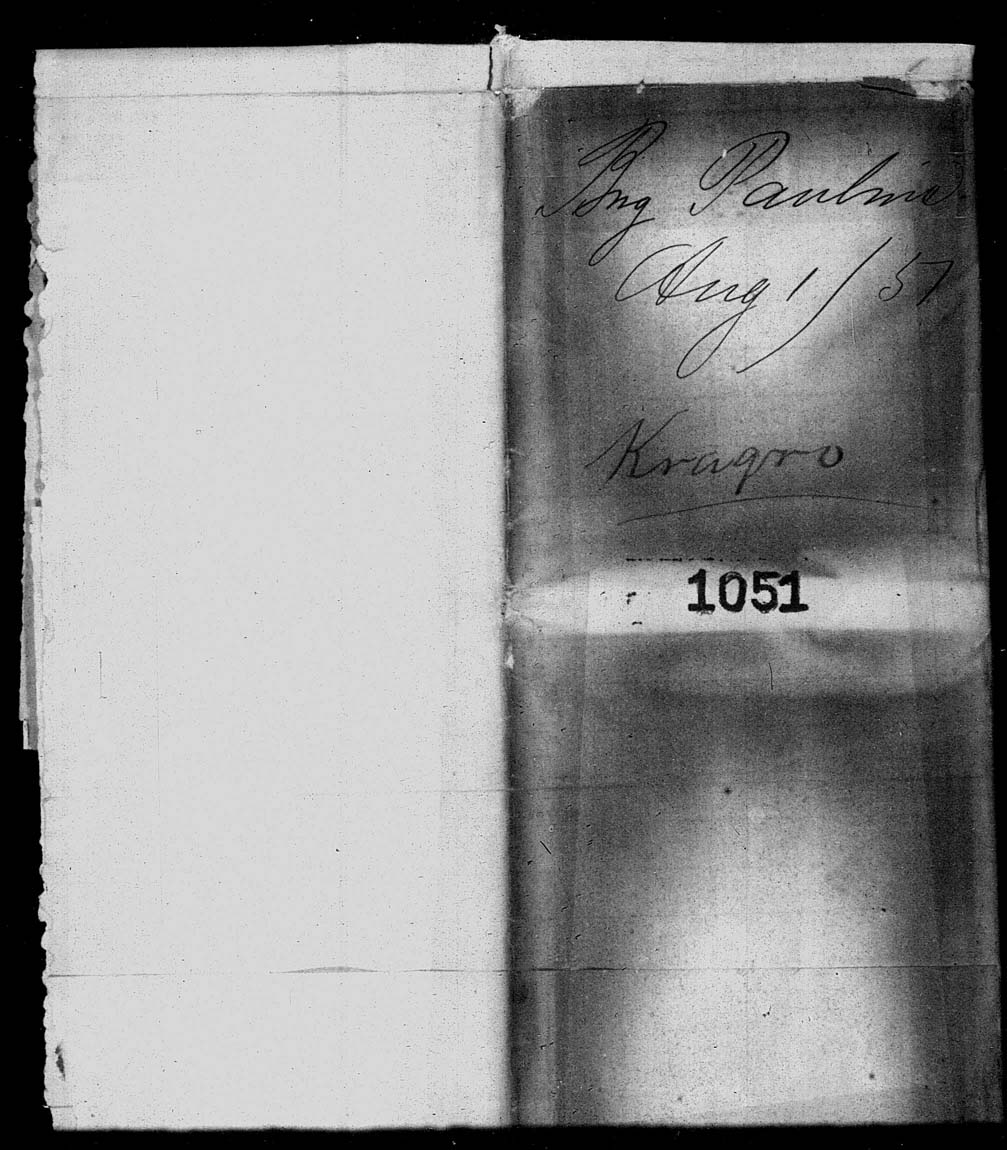 Brig Pauline
Aug 1 / 57
Kragro
1051